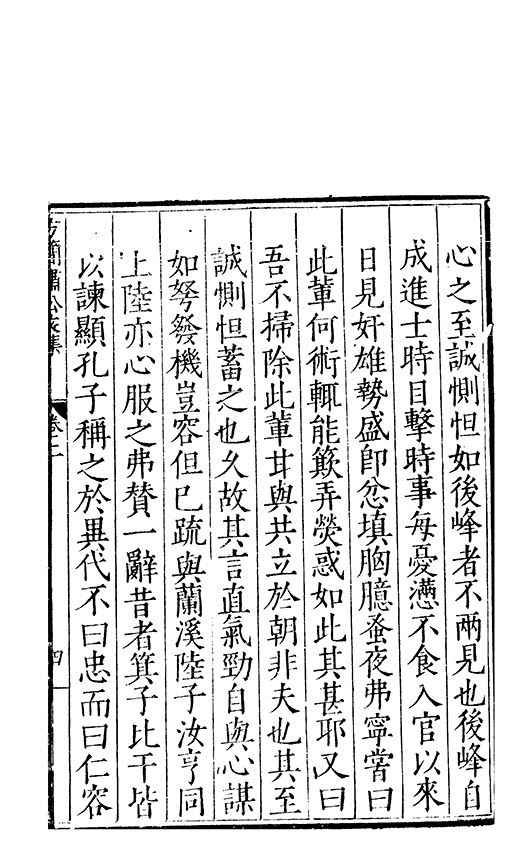 心之至誠惻怛如後峰者不兩見也後峰自
成進士時目擊時事每憂懣不食入官以來
日見奸雄勢盛卽忿填胸臆蚤夜弗寧嘗曰
此軰何術輒能欺弄熒惑如此其甚耶又曰
吾不掃除此軰甘與共立於朝非夫也其至
誠惻怛蓄之也久故其言直氣勁自與心謀
如弩發機豈容但已疏與蘭溪陸子汝亨同
上陸亦心服之弗賛一辭昔者箕子比干皆
以諫顯孔子稱之於異代不曰忠而曰仁容
卷二
四